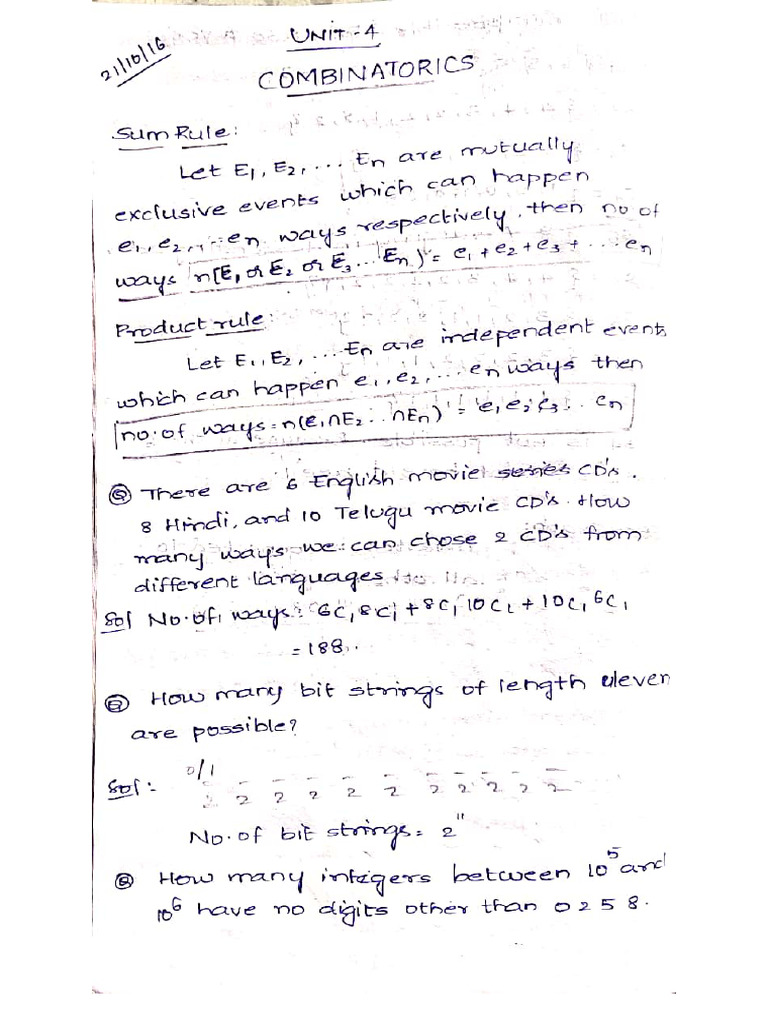 21/10/16
UNIT-4
COMBINATORICS
Sum Rule:
Let E1, E2, ... En are mutually
exclusive events which can happen
e1, e2, ... en ways respectively, then no of
ways n(E1 or E2 or E3 ... En) = e1 + e2 + e3 + ... en
Product rule:
Let E1, E2, ... En are independent events
which can happen e1, e2, ... en ways then
no. of ways = n(E1∩E2 ... ∩En) = e1 e2 e3 ... en
Q There are 6 English movie series CD's.
8 Hindi, and 10 Telugu movie CD's. How
many ways we can chose 2 CD's from
different languages
Sol No. of ways: 6C1 8C1 + 8C1 10C1 + 10C1 6C1
= 188.
Q How many bit strings of length eleven
are possible?
Sol: 0/1
2 2 2 2 2 2 2 2 2 2 2
No. of bit strings = 2^11
Q How many integers between 10^5 and
10^6 have no digits other than 0 2 5 8.